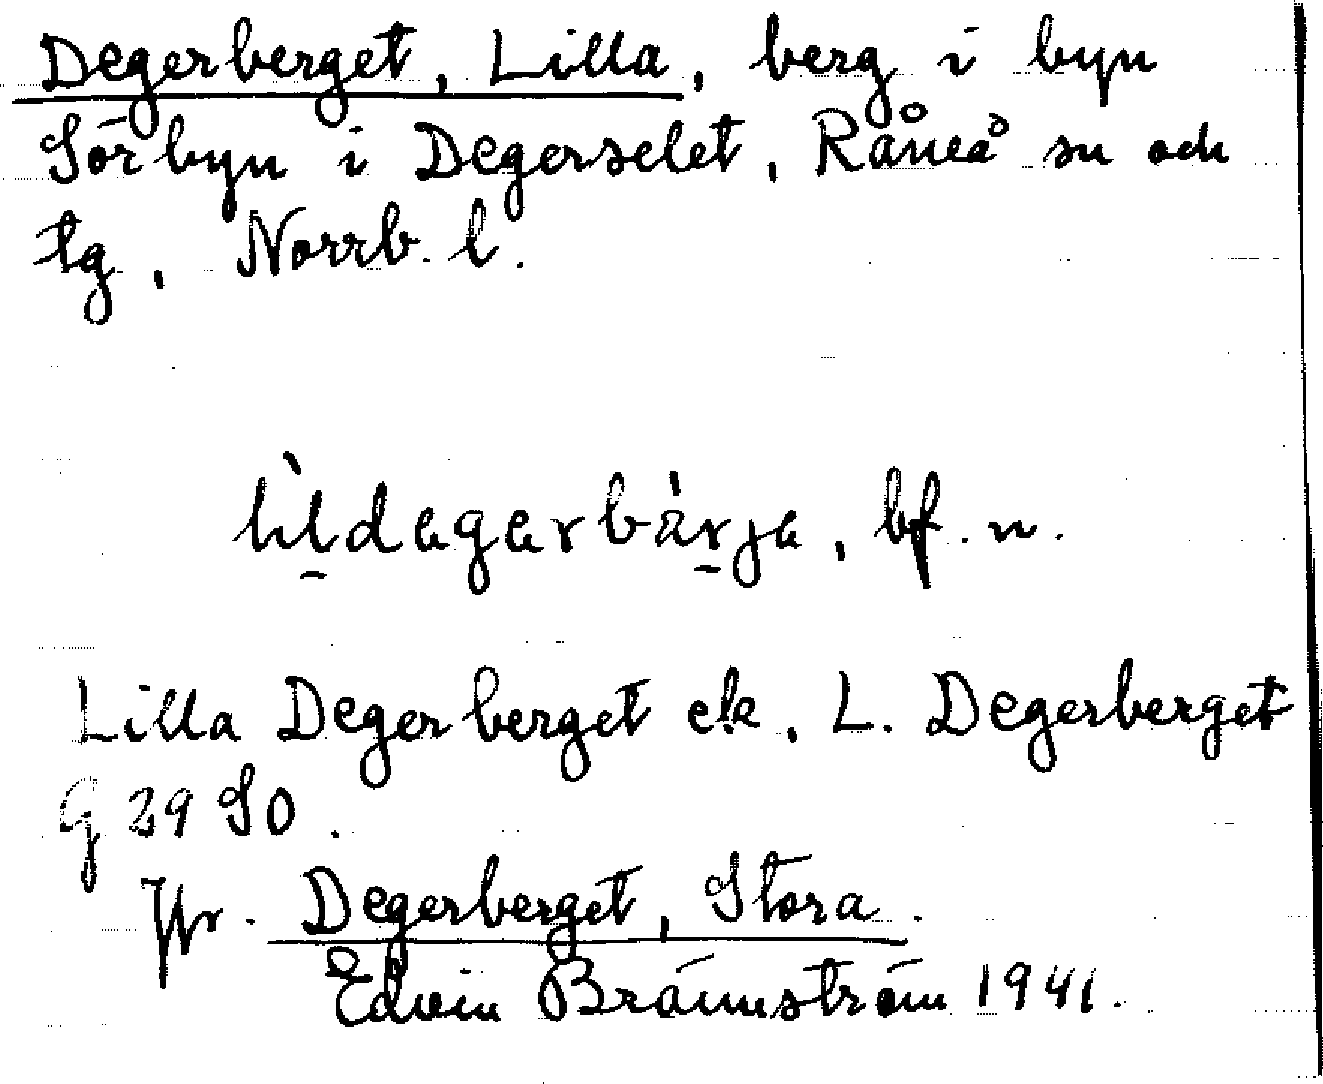 Degerberget, Lilla, berg i byn
Sörbyn i Degerselet, Råneå sn och
tg, Norrb. l.
lìl̠degerbàr̠ja, bf. n.
Lilla Degerberget ek, L. Degerberget
G 39 SO.
Jfr. Degerberget, Stora.
Edvin Brännström 1941.